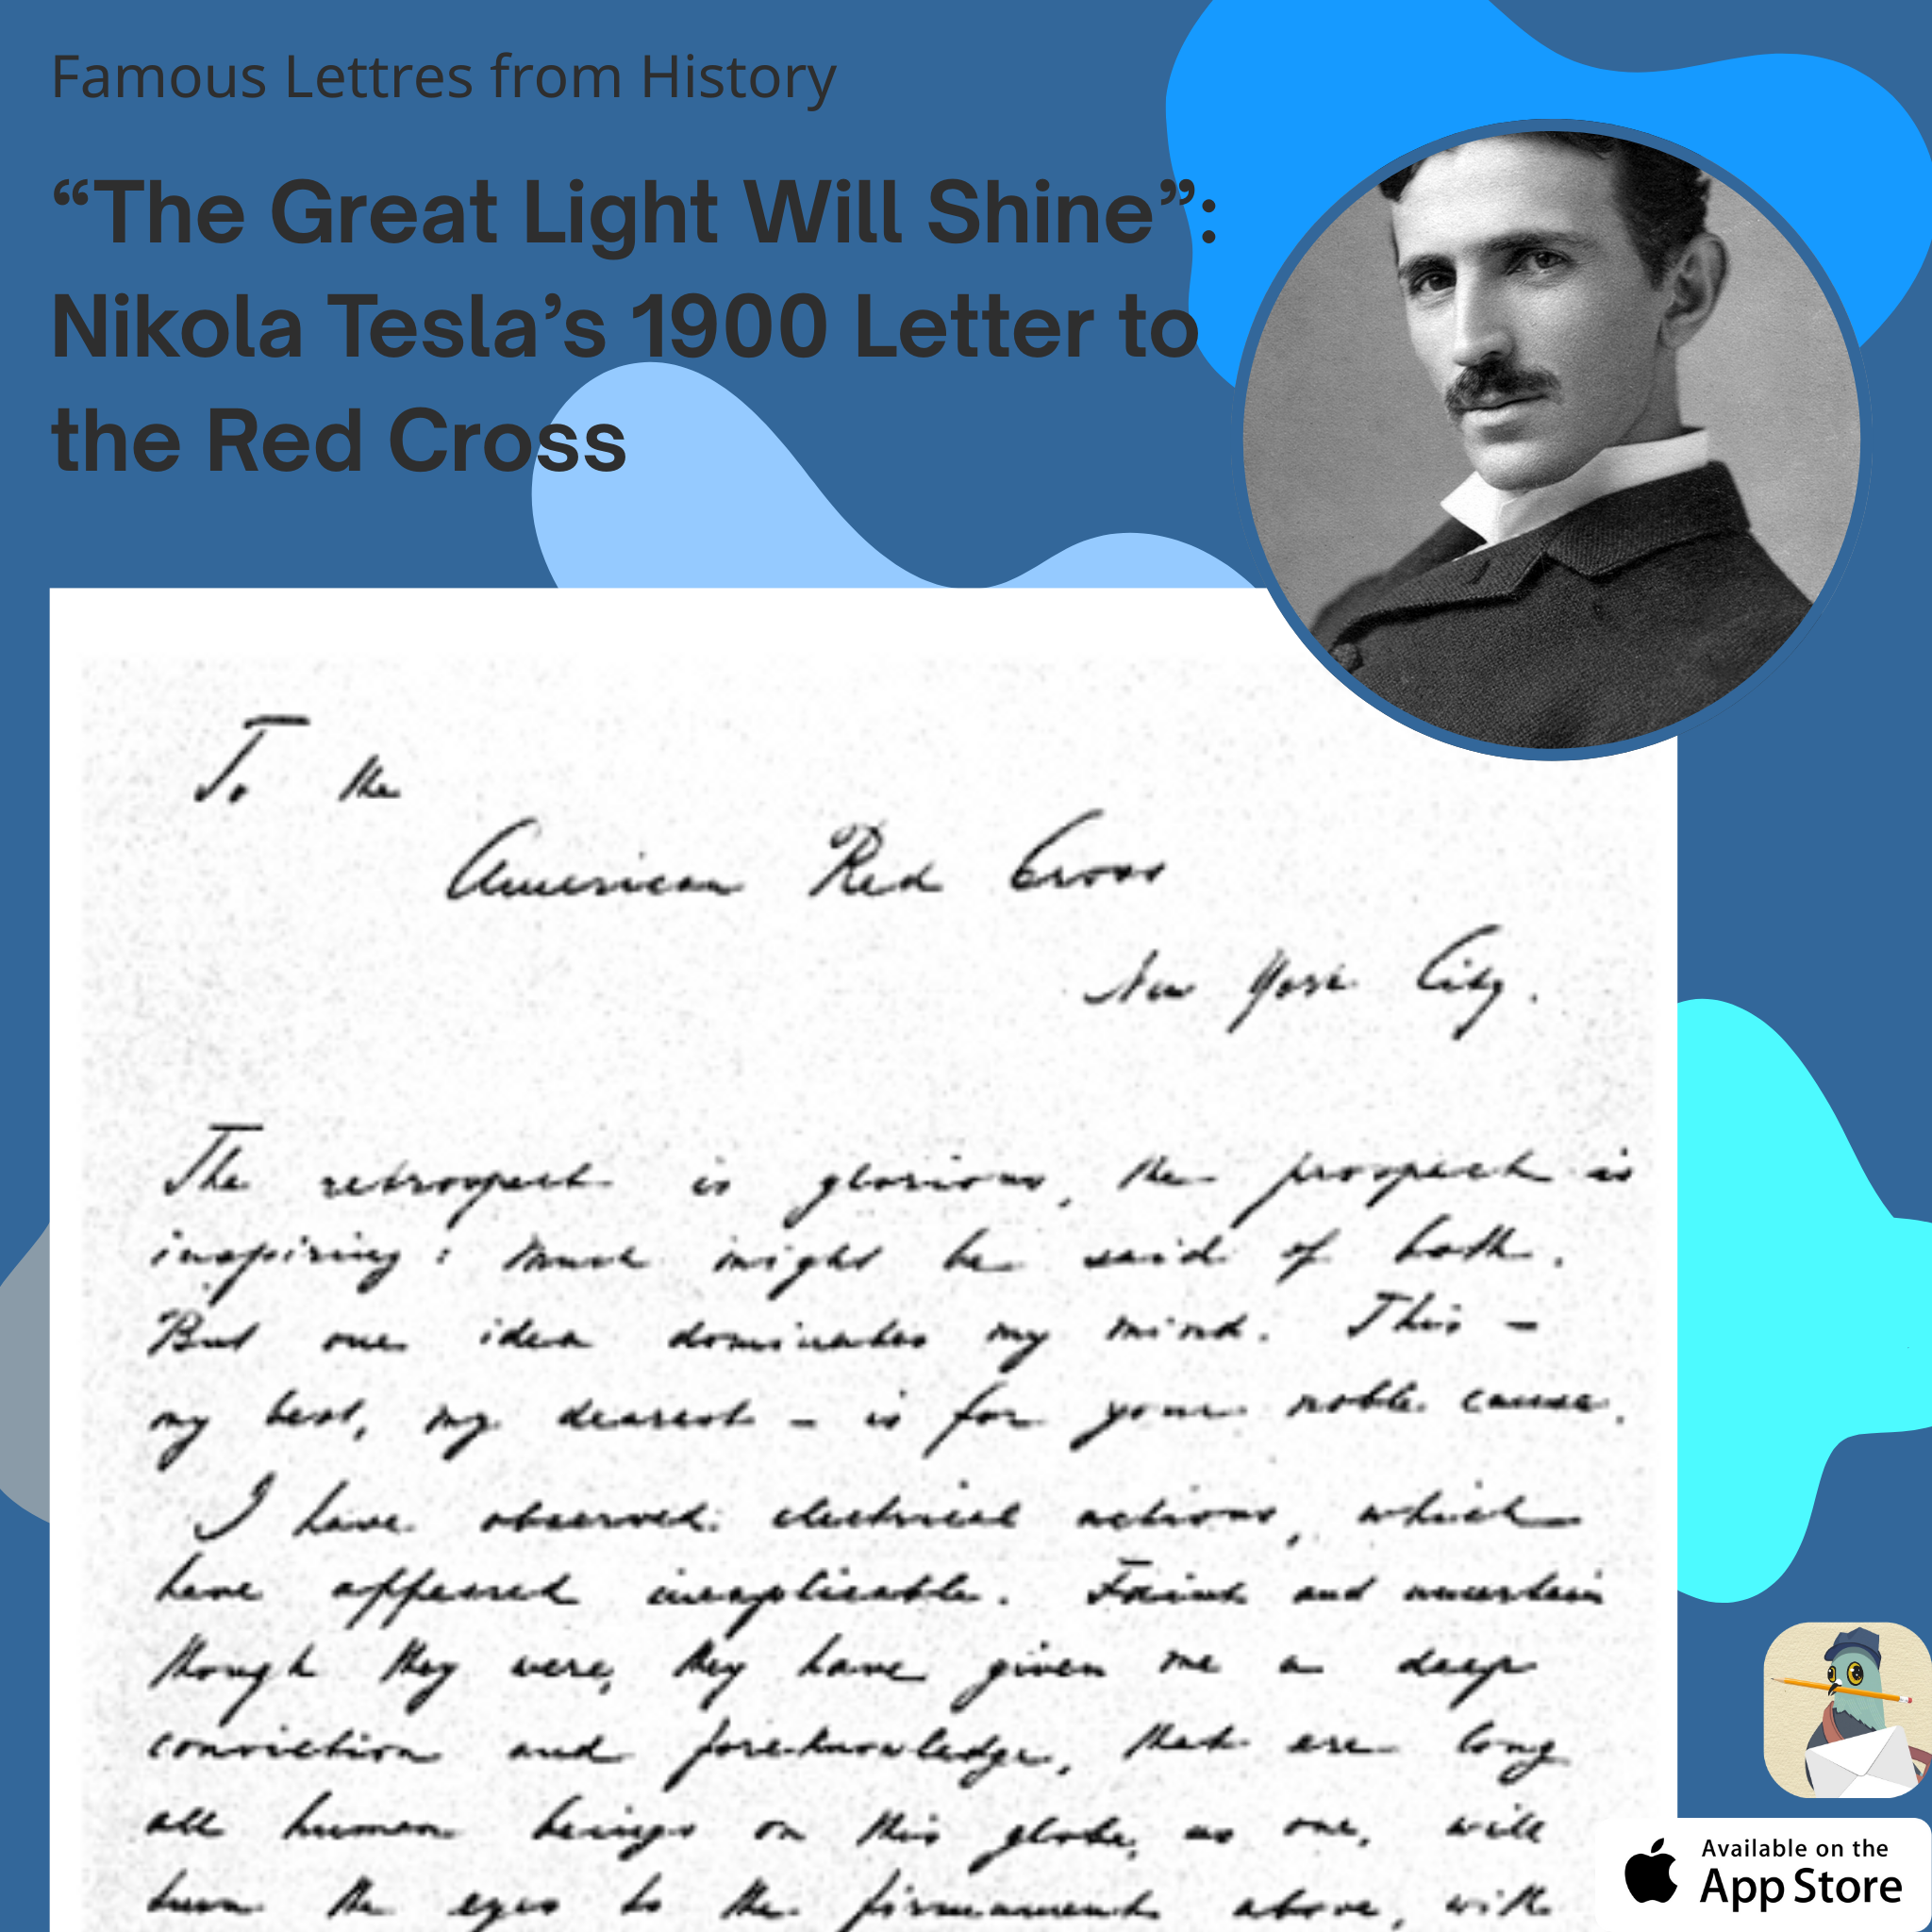 Famous Lettres from History
“The Great Light Will Shine”:
Nikola Tesla’s 1900 Letter to
the Red Cross
To the
American Red Cross
New York City.
The retrospect is glorious, the prospect is
inspiring: Much might be said of both.
But one idea dominates my mind. This –
my best, my dearest – is for your noble cause.
I have observed electrical actions, which
have appeared inexplicable. Faint and uncertain
though they were, they have given me a deep
conviction and foreknowledge, that ere long
all human beings on this globe, as one, will
turn the eyes to the firmament above, with
Available on the
App Store